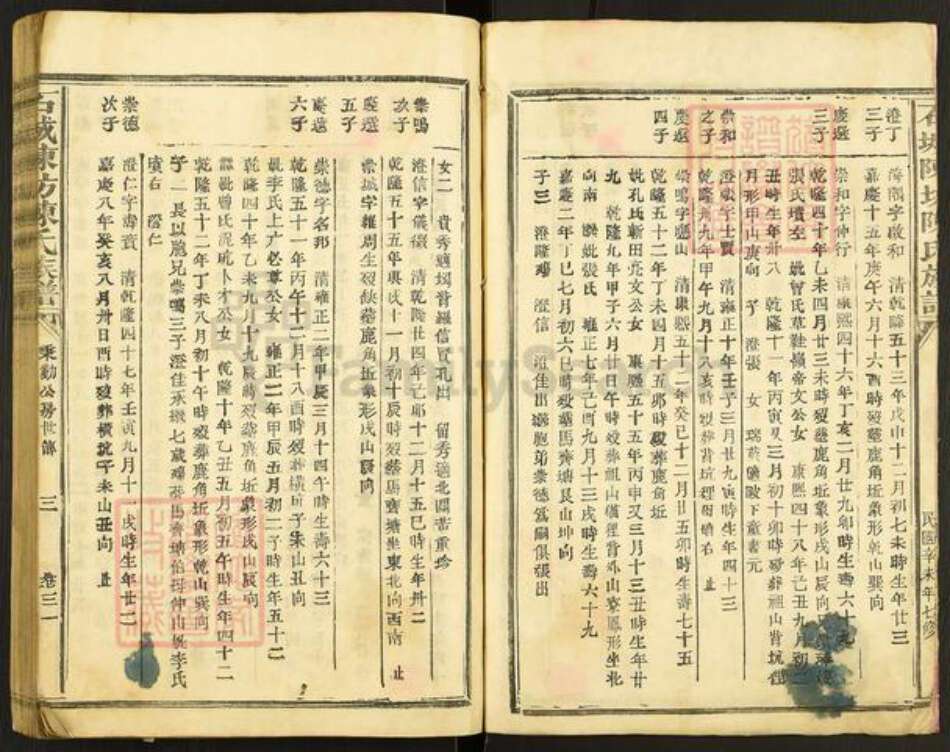 石城陳坊陳氏族譜
民國辛未年七修
澄丁
三子
海閣字啟和 清乾隆五十三年戊申十二月初七未時生年廿三
嘉慶十五年庚午六月十六酉時歿塟鹿角坵象形乾山巽向
慶選
三子
崇和字仲行 清康熙四十六年丁亥二月廿九卯時生壽六十九
乾隆四十年乙未四月廿三未時歿塟鹿角坵象形戌山辰向
張氏墳左 妣曾氏草鞋嶺帝文公女 康熙四十八年己丑九月初二
丑時生年廿八 乾隆十一年丙寅又三月初十卯時歿葬祖山背坑
月形甲山庚向 子 澄張 女
崇和
之子
澄張字士賢 清雍正十年壬子三月廿九寅時生年四十三
乾隆卅九年甲午九月十八亥時歿葬背坑 止
慶選
四子
崇鳴字鳳山 清康熙五十二年癸巳十二月廿五卯時生壽七十五
乾隆五十二年丁未四月十五卯時歿葬鹿角坵
妣孔氏斬田亮文公女 康熙五十五年丙申又三月十三丑時生年廿
九 乾隆九年甲子六月廿日午時歿葬祖山 背外山寮鳳形坐北
向南 娛妣張氏 雍正七年己酉九月十三戌時生壽六十九
嘉慶二年丁巳七月初六巳時歿塟馬齊塘艮山坤向
子三 澄隆殤 澄信 澄佳出繼胞弟崇德為嗣俱張出
女二 貴秀適坳背羅信賢孔出 留秀適北關
崇鳴
次子
澄信字儀懷 清乾隆廿四年己卯十二月十五巳時生年卅二
乾隆五十五年庚戌十一月初十辰時歿塟馬齊塘坐東北向西南 止
慶選
五子
崇城字雜周生歿缺塟鹿角坵象形戌山辰向
慶選
六子
崇德字名邦 清雍正二年甲辰三月十四午時生壽六十三
乾隆五十一年丙午十二月十八酉時歿葬橫坑子未山丑向
妣李氏上 必尊公女 雍正二年甲辰五月初二子時生年五十二
乾隆四十年乙未九月十九辰時歿葬鹿角坵象形戌山辰向
氏 卜才公女 乾隆十年乙丑五月初五午時生年四十二
乾隆五十二年丁未八月初十午時歿葬鹿角坵象形乾山巽向
子二 長以胞兄崇鳴三子澄佳承繼七歲殤葬馬齊塘伯母仲山妣李氏
墳右 澄仁
崇德
次子
澄仁字壽賓 清乾隆四十七年壬寅九月十 戌時生年廿二
嘉慶八年癸亥八月卅日酉時歿葬橫坑子未山丑向 止
石城陳坊陳氏族譜
秉勳公房世傳
三
卷三一
FamilySearch